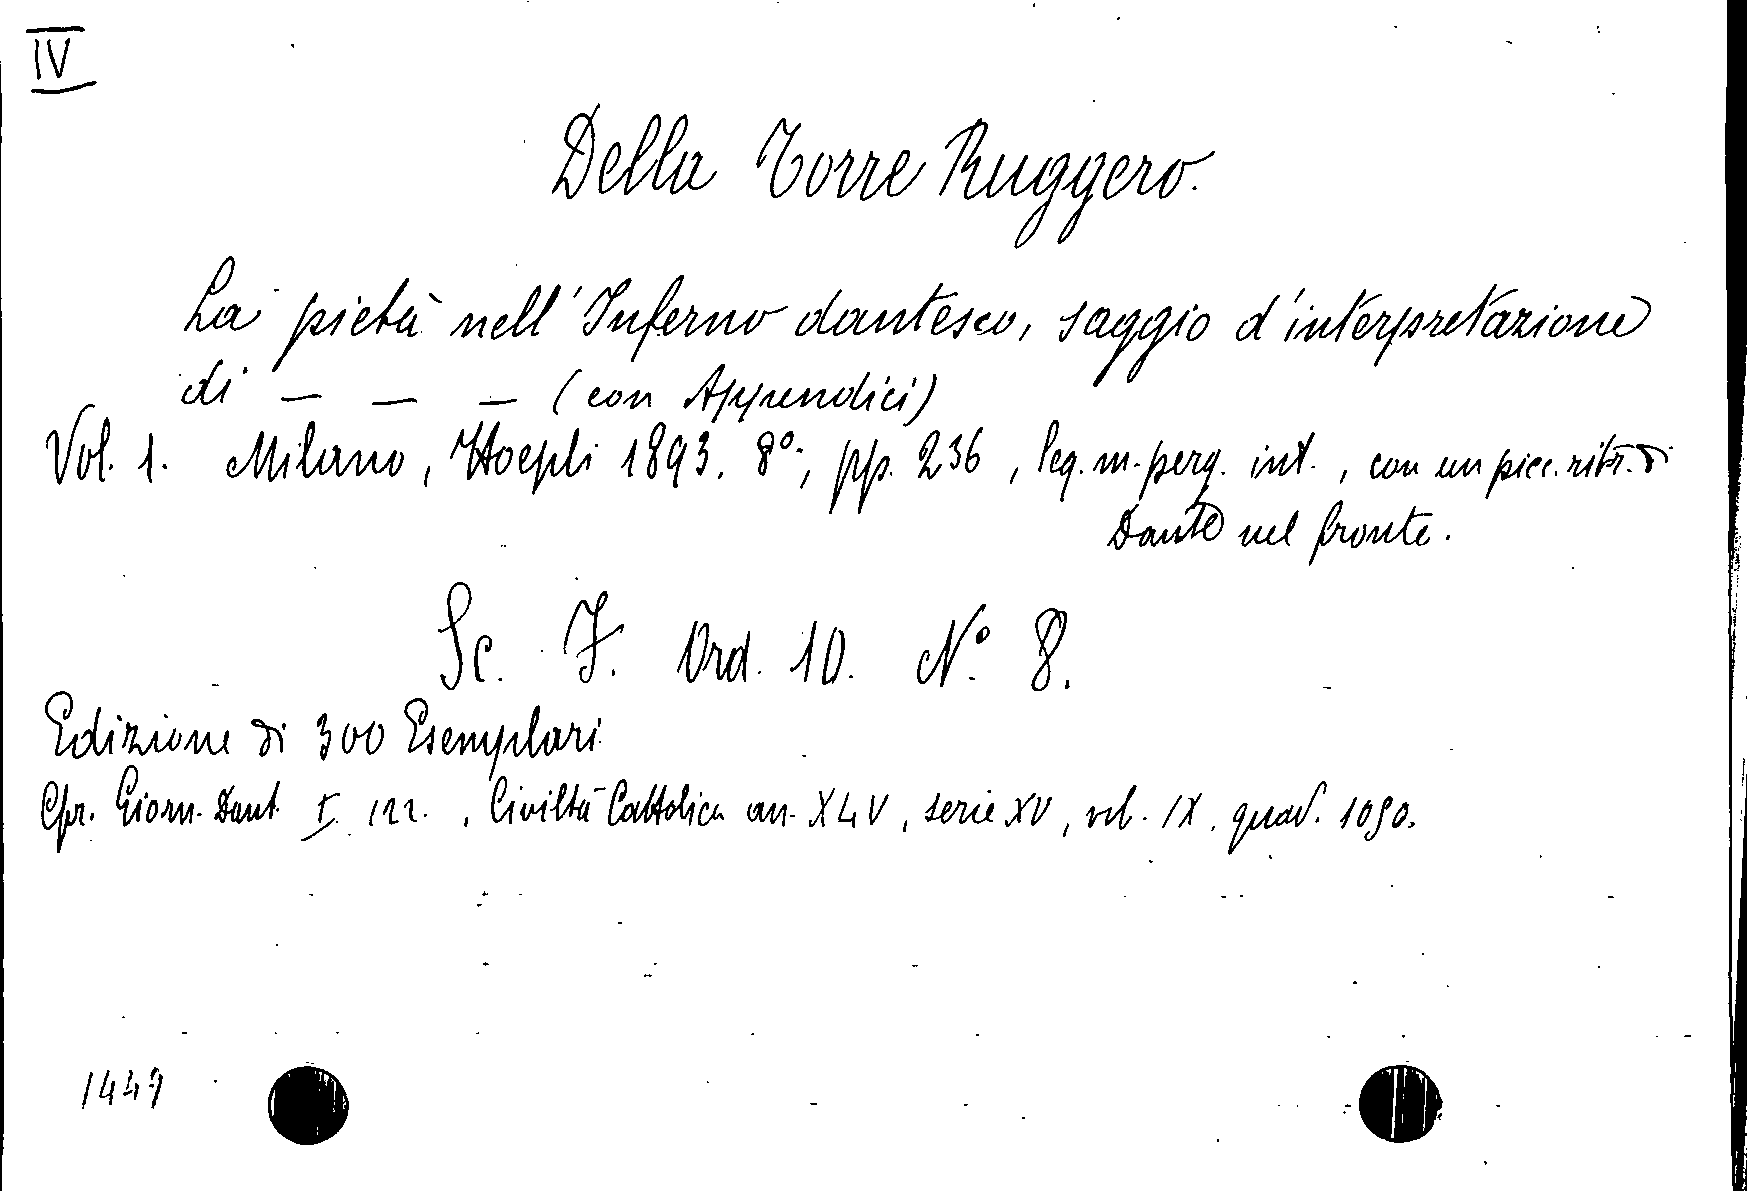 IV
Della Torre Ruggero.
La pietà nell'Inferno dantesco, saggio d'interpretazione
di — — — (con Appendici)
Vol. 1. Milano, Hoepli 1893. 8°; pp. 236, leg. m. perg. int., con un picc. ritr. di
Dante nel fronte.
Sc. F. Ord. 10. N° 8.
Edizione di 300 Esemplari
Cfr. Giorn. Dant. I. 122., Civiltà Cattolica an. XLV, serie XV, vol. IX. quad. 1050.
1449